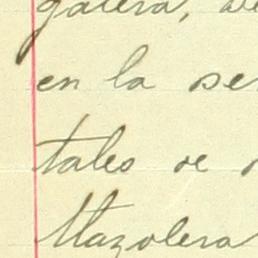 galera, de
en la se
tales de
Mazolera